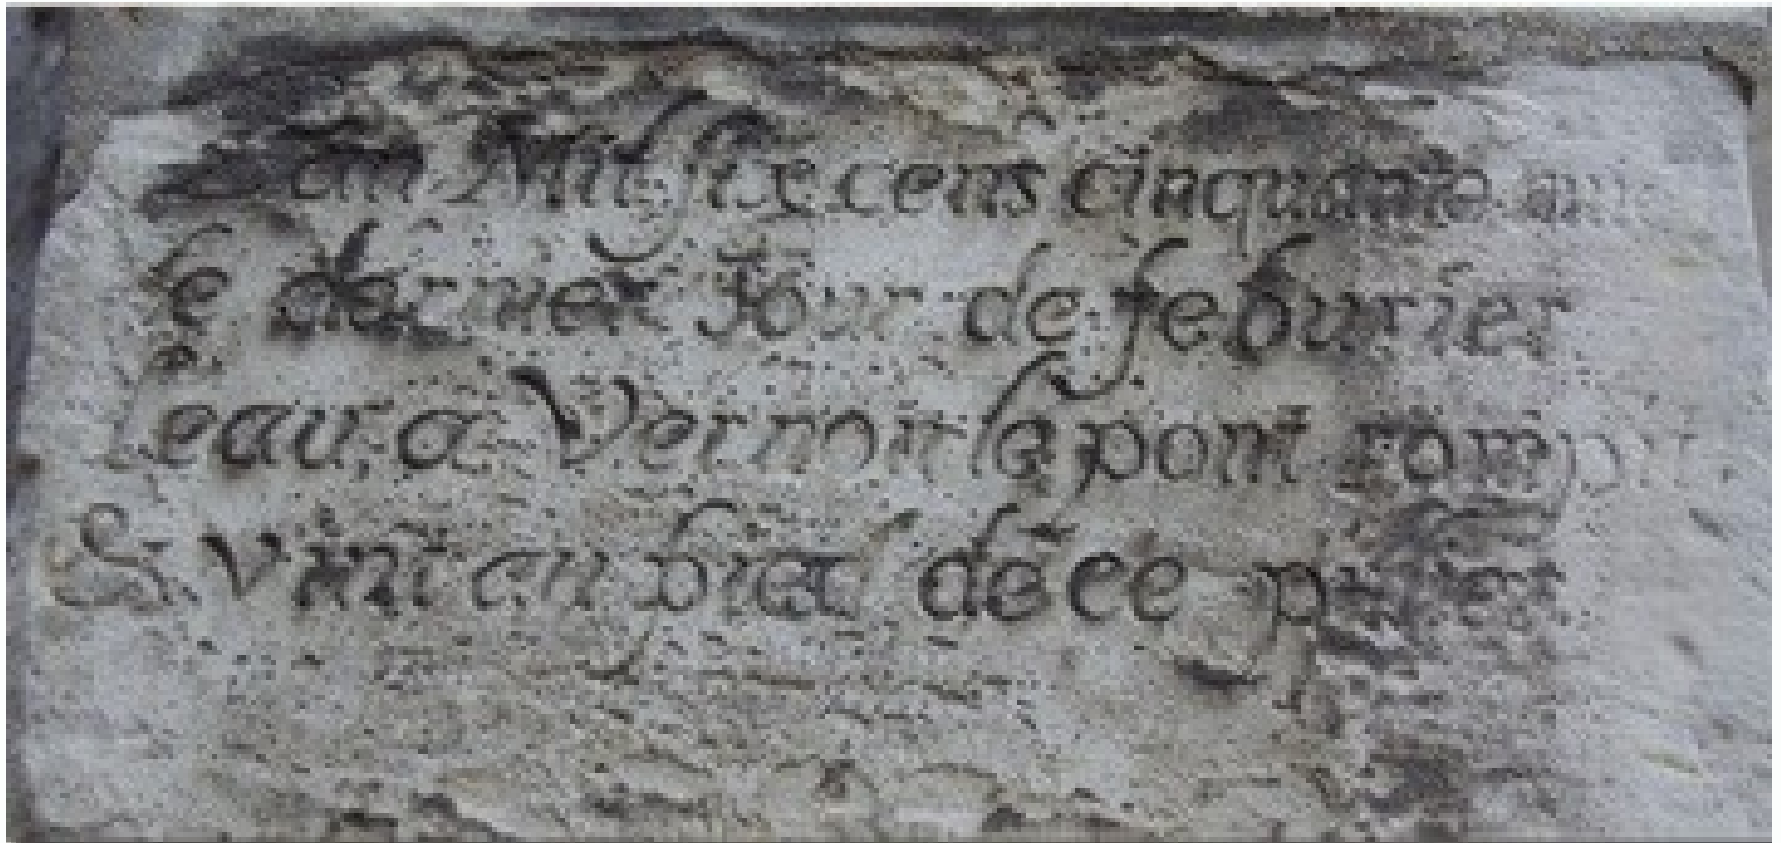 an Mil six cens cinquante
le dernier Jour de feburier
leau a Vernon le pont rompu
& vint au pied de ce